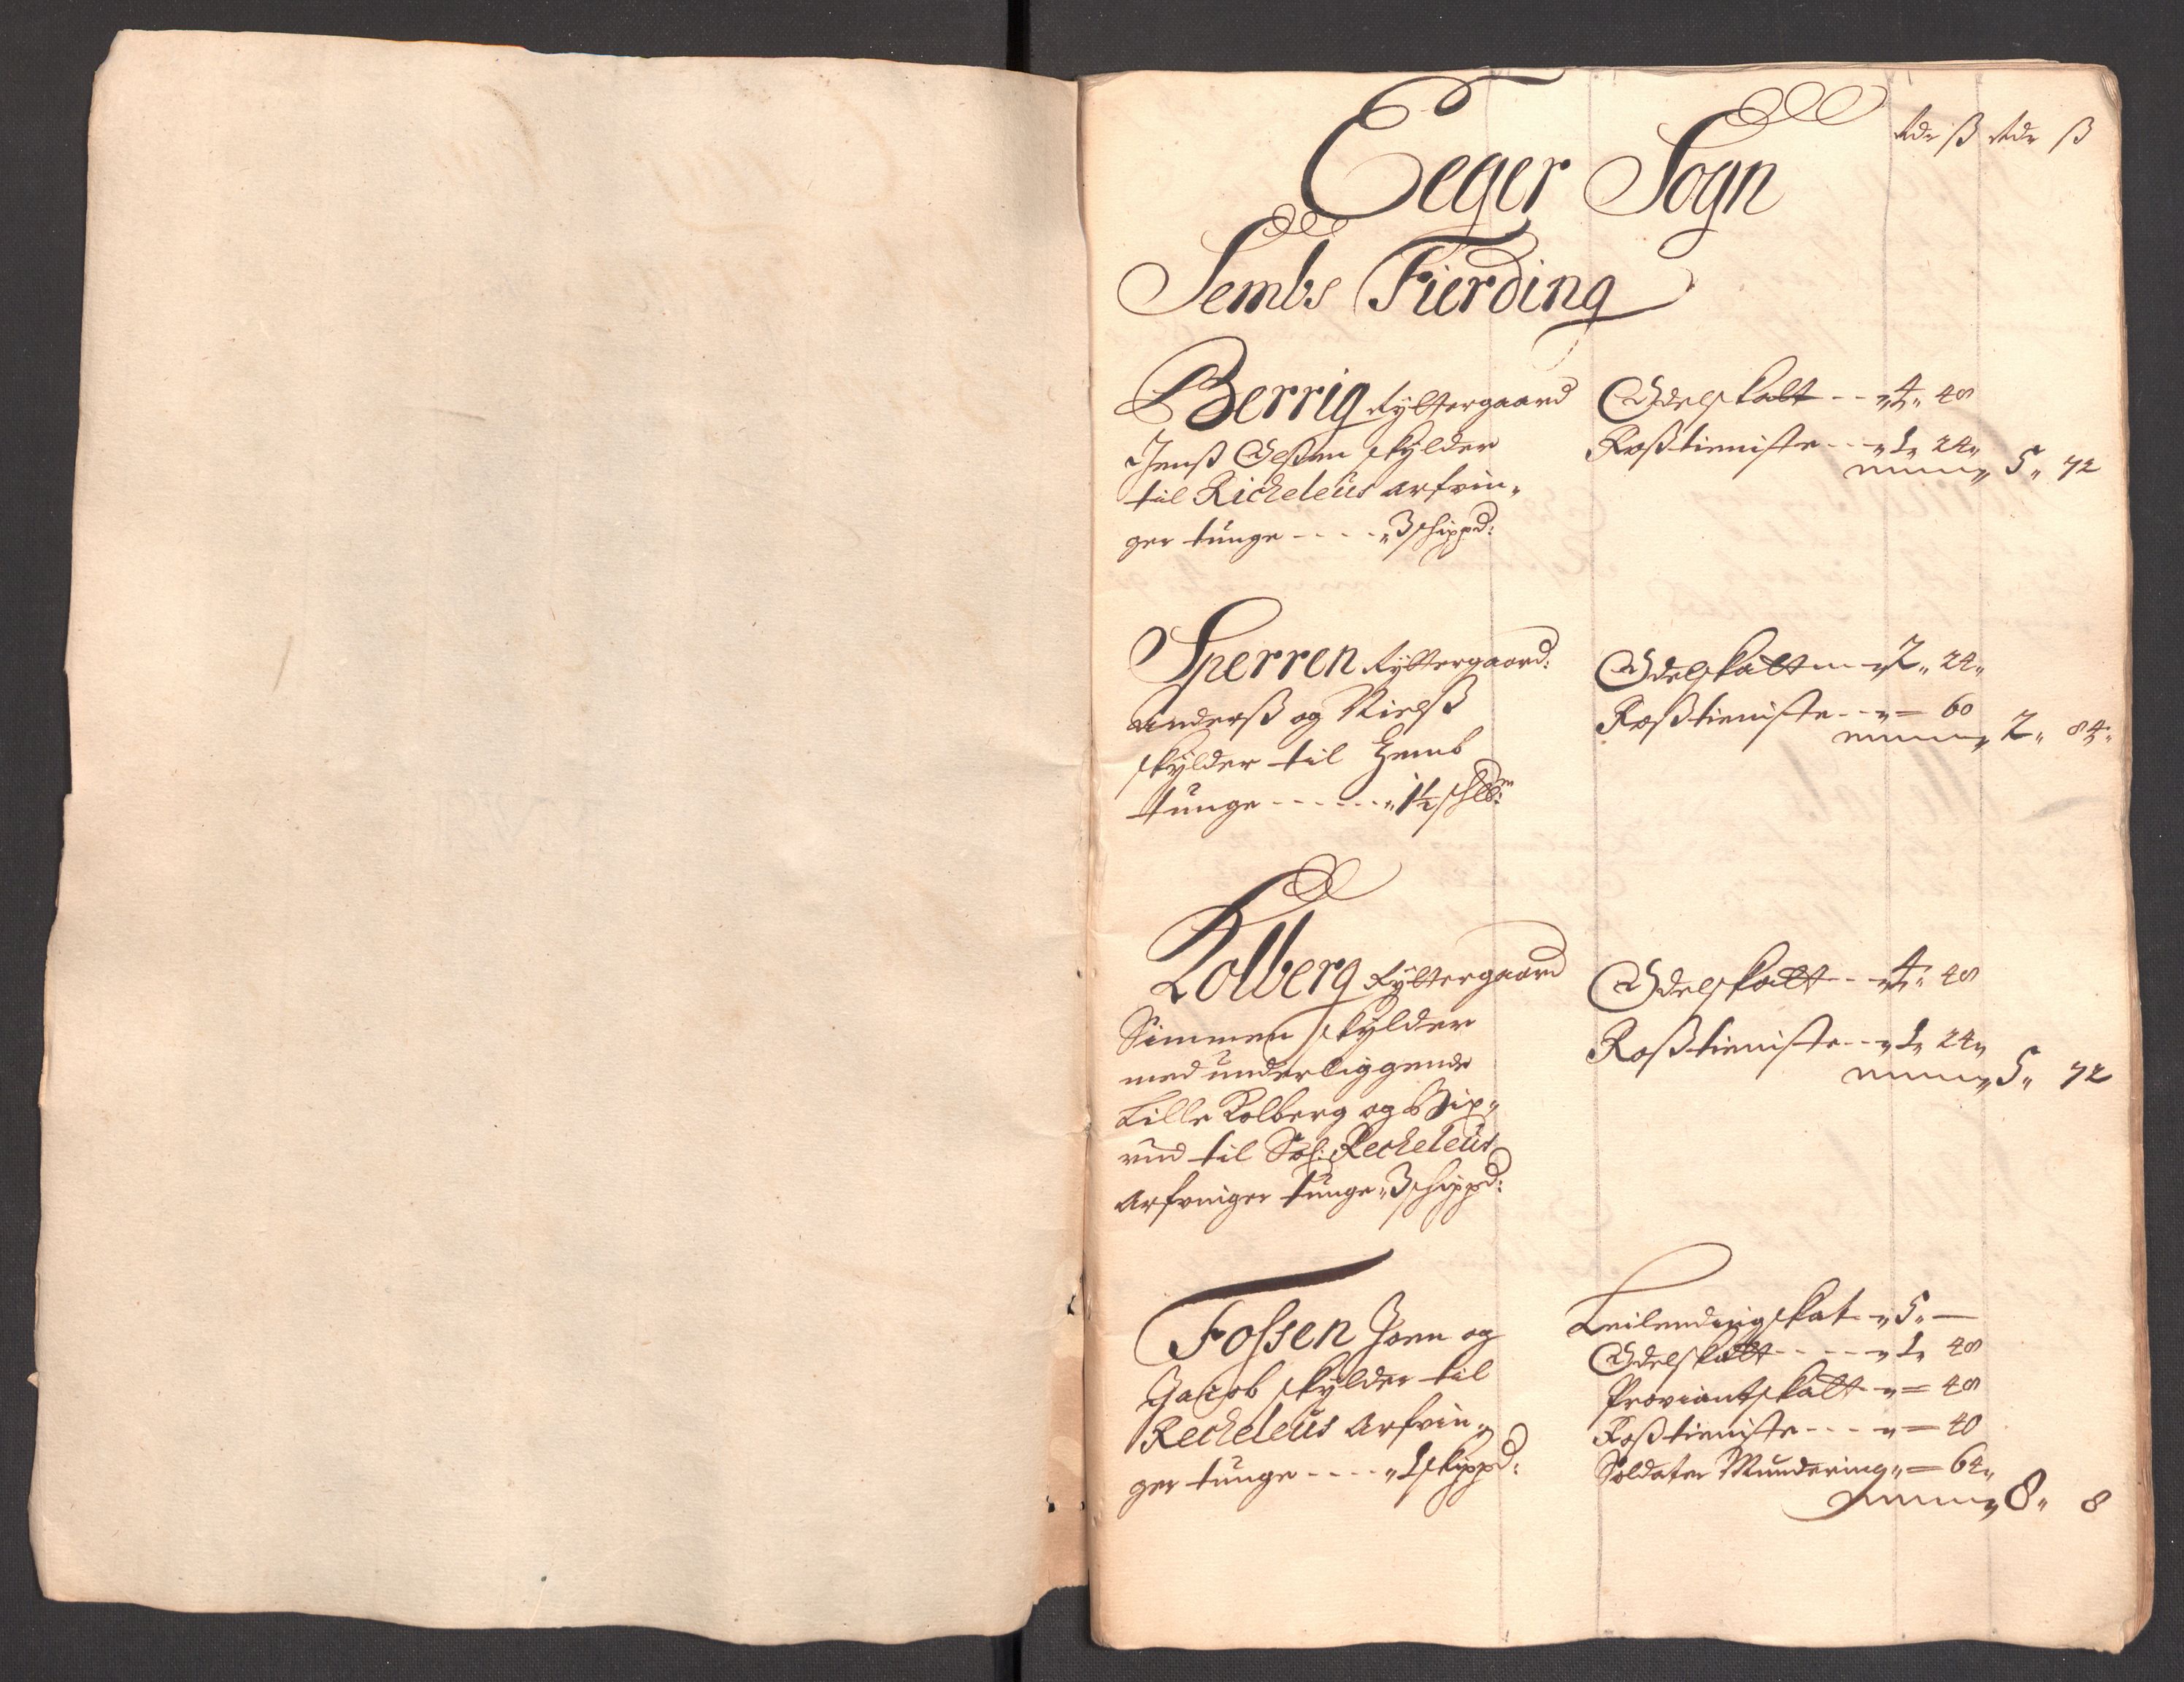 Rdr ß Rdr ß
Eeger Sogn
Sembs Fierding
Berrig Ryttergaard
Jenß Olßen skylder
til Richeleus arfvin„
ger tunge - - - - „ 3 schippd:
Odelskatt - - „ 4 „ 48
Roßtieniste - - - „ 1 „ 24 „
5 „ 72
Sperren Ryttergaard:
Anderß og Nielß
skylder til Hemb
tunge - - - - - - „ 1½
Odelskatt „ 2 „ 24 „
Roßtieniste - - „ = 60
2 „ 84 „
Kolberg Ryttergaard
Simmen skylder
med underliggende
Lille Kolberg og
rud til Sal: Recheleus
Arfvinger tunge „ 3 schippd:
Odelskatt - - „ 4 „ 48
Roßtieniste - - „ 1 „ 24 „
5 „ 72
Fossen Joen og
Jacob skylder til
Recheleus Arfvin„
ger tunge - - - - „ 1 skippd:
Leilendingskat „ 5 „ —
Odelskatt - - - - - „ 1 „ 48
Proviantskatt „ = 48
Roßtieniste - - - „ = 40
Soldater Mundering „ = 64 „
8 „ 8